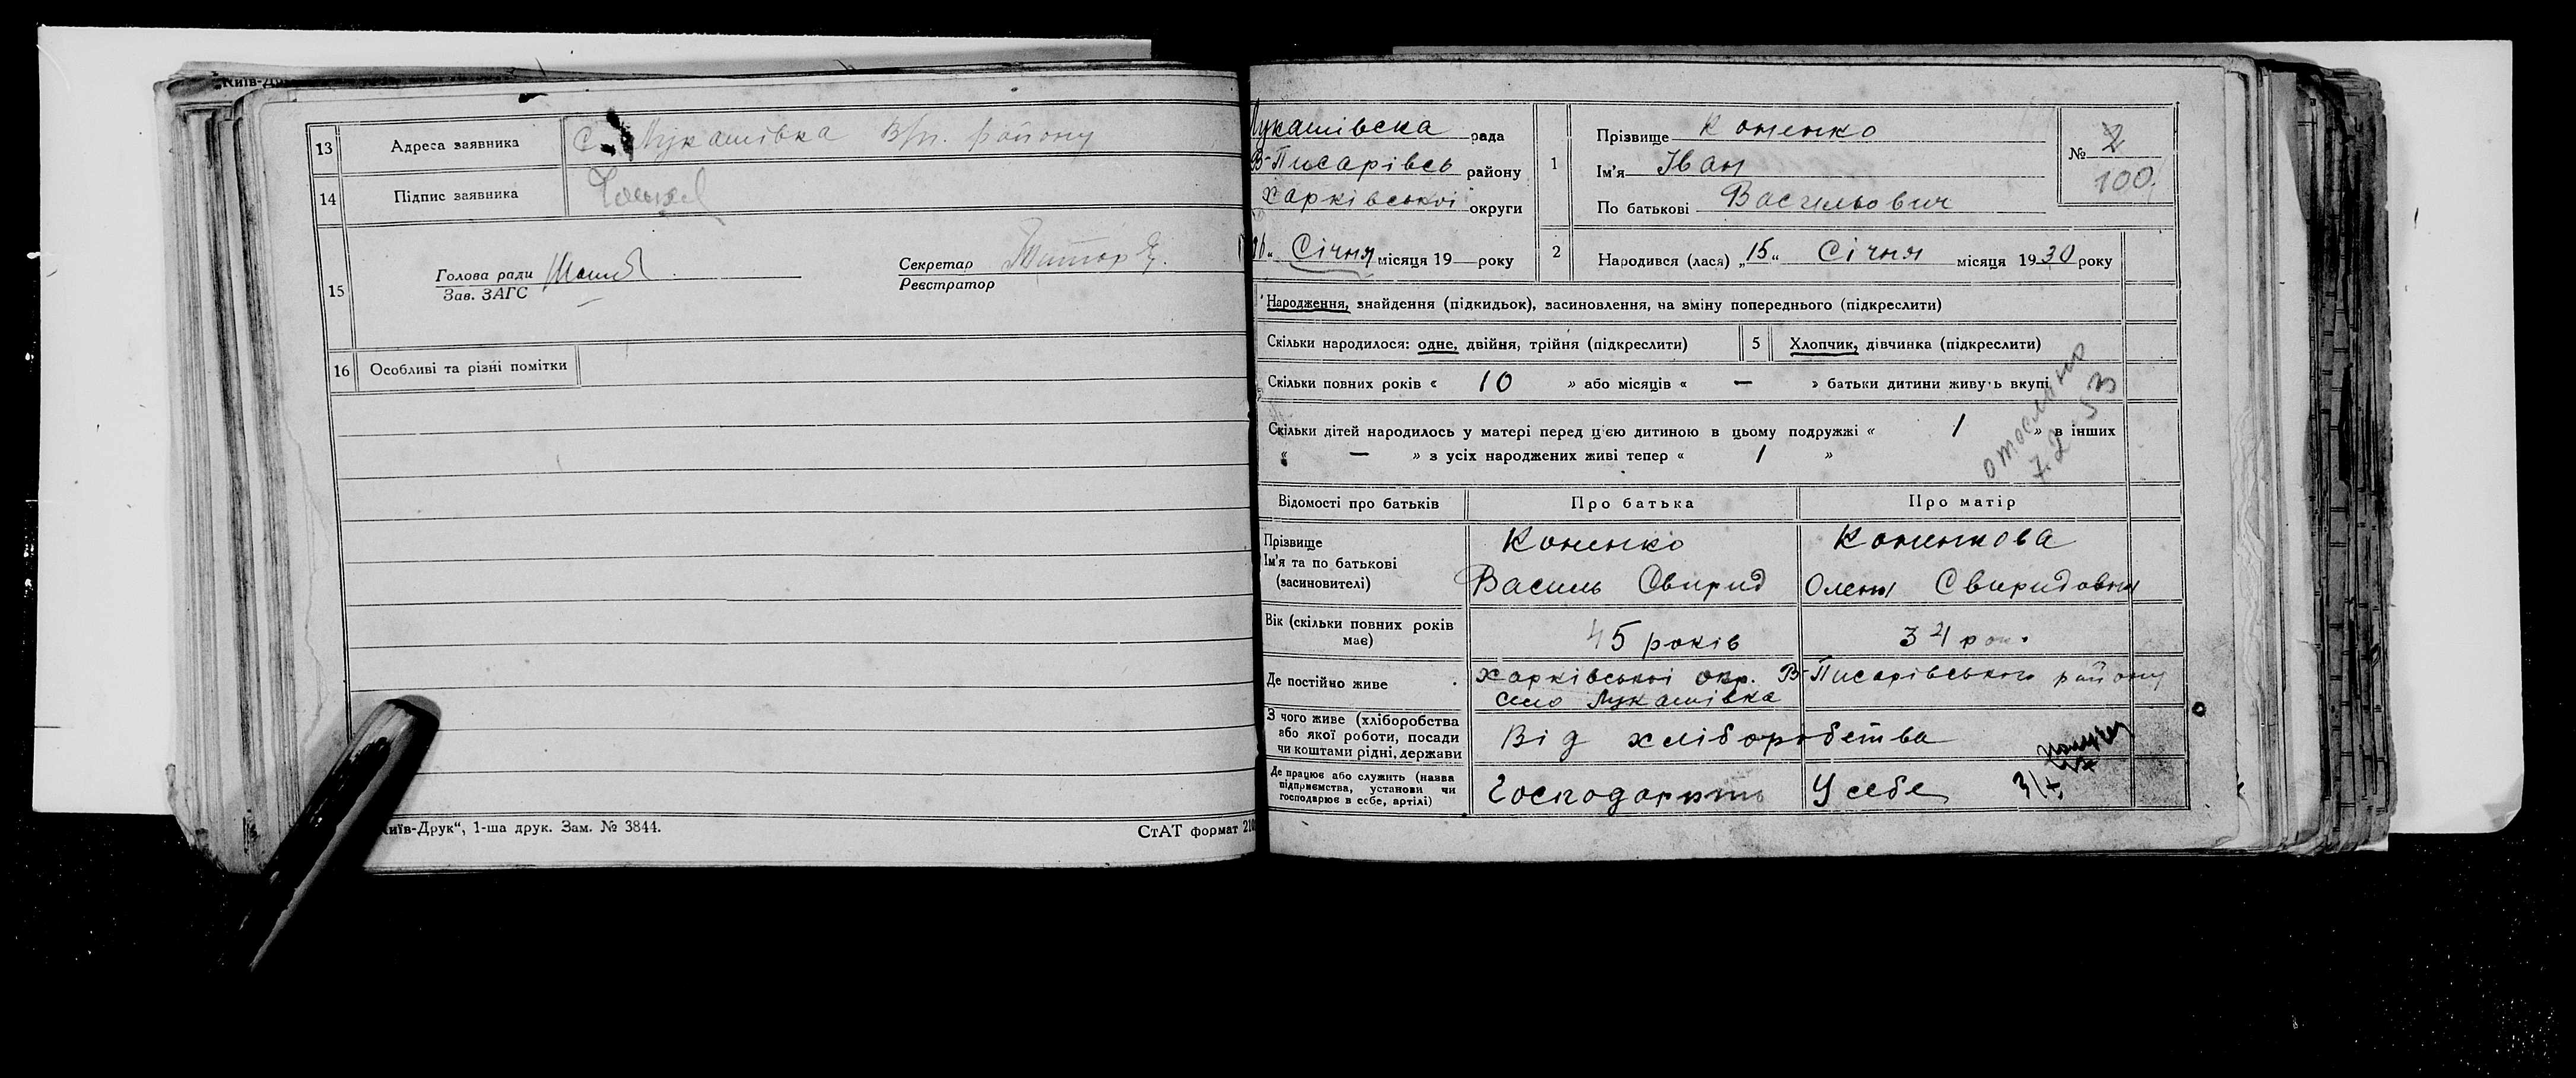 13 Адреса заявника С. Лукашівка В/п. району
14 Підпис заявника
15 Голова ради
Зав. ЗАГС
Секретар
Реєстратор
16 Особливі та різні помітки
иїв-Друк“, 1-ша друк. Зам. № 3844.
СтАТ формат 210
Лукашівска рада
В-Писарівсь району
Харківської округи
Січня місяця 19 року
1 Прізвище Коненко
Ім'я Іван
По батькові Васильович
№ 2
100
2 Народився (лася) „15“ Січня місяця 1930 року
Народження, знайдення (підкидьок), засиновлення, на зміну попереднього (підкреслити)
Скільки народилося: одне, двійня, трійня (підкреслити)
5 Хлопчик, дівчинка (підкреслити)
Скільки повних років « 10 » або місяців « — » батьки дитини живуть вкупі
Скільки дітей народилось у матері перед цією дитиною в цьому подружжі « 1 » в інших
« — » з усіх народжених живі тепер « 1 »
7.2 53
Відомості про батьків Про батька Про матір
Прізвище Коненко Коненкова
Ім'я та по батькові
(засиновителі) Василь Свирид Олена Свиридовна
Вік (скільки повних років
має) 45 років 34 рок.
Де постійно живе Харківської окр. В-Писарівського району
село Лукашівка
З чого живе (хліборобства
або якої роботи, посади
чи коштами рідні, держави Від хліборобства
Де працює або служить (назва
підприємства, установи чи
господарює в себе, артілі) Господарють У себе